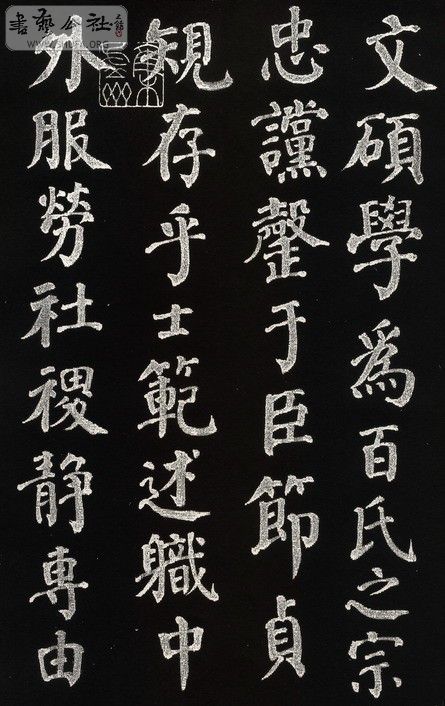 文碩學爲百氏之宗
忠讜罄于臣節貞
規存乎士範述職中
外服勞社稷静專由
書藝公社
WWW.SHUFA.ORG